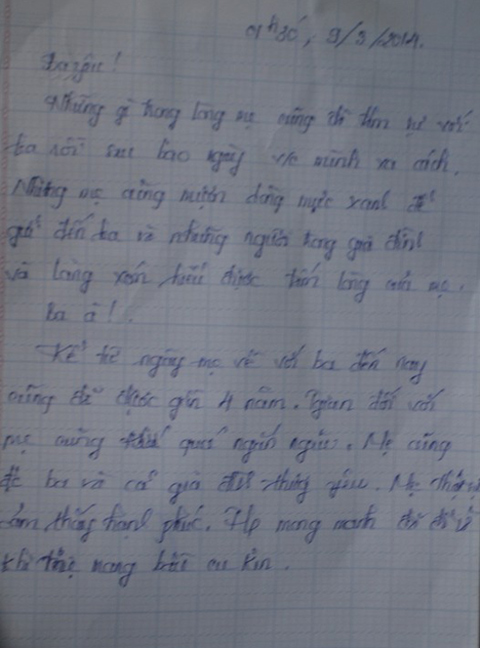 01h30', 9/3/2014.
Ba yêu!
Những gì trong lòng mẹ cũng đã tâm sự với
ba rồi sau bao ngày v/c mình xa cách.
Nhưng mẹ cũng mượn dòng mực xanh để
gửi đến ba và những người trong gia đình
và làng xóm hiểu được tấm lòng của mẹ.
Ba à!
Kể từ ngày mẹ về với ba đến nay
cũng đã được gần 4 năm. Tgian đối với
mẹ cũng quá ngắn ngủi. Mẹ cũng
đc ba và cả gia đình thương yêu. Mẹ
cảm thấy hạnh phúc. Hp mong manh đã
khi mẹ mang bầu cu